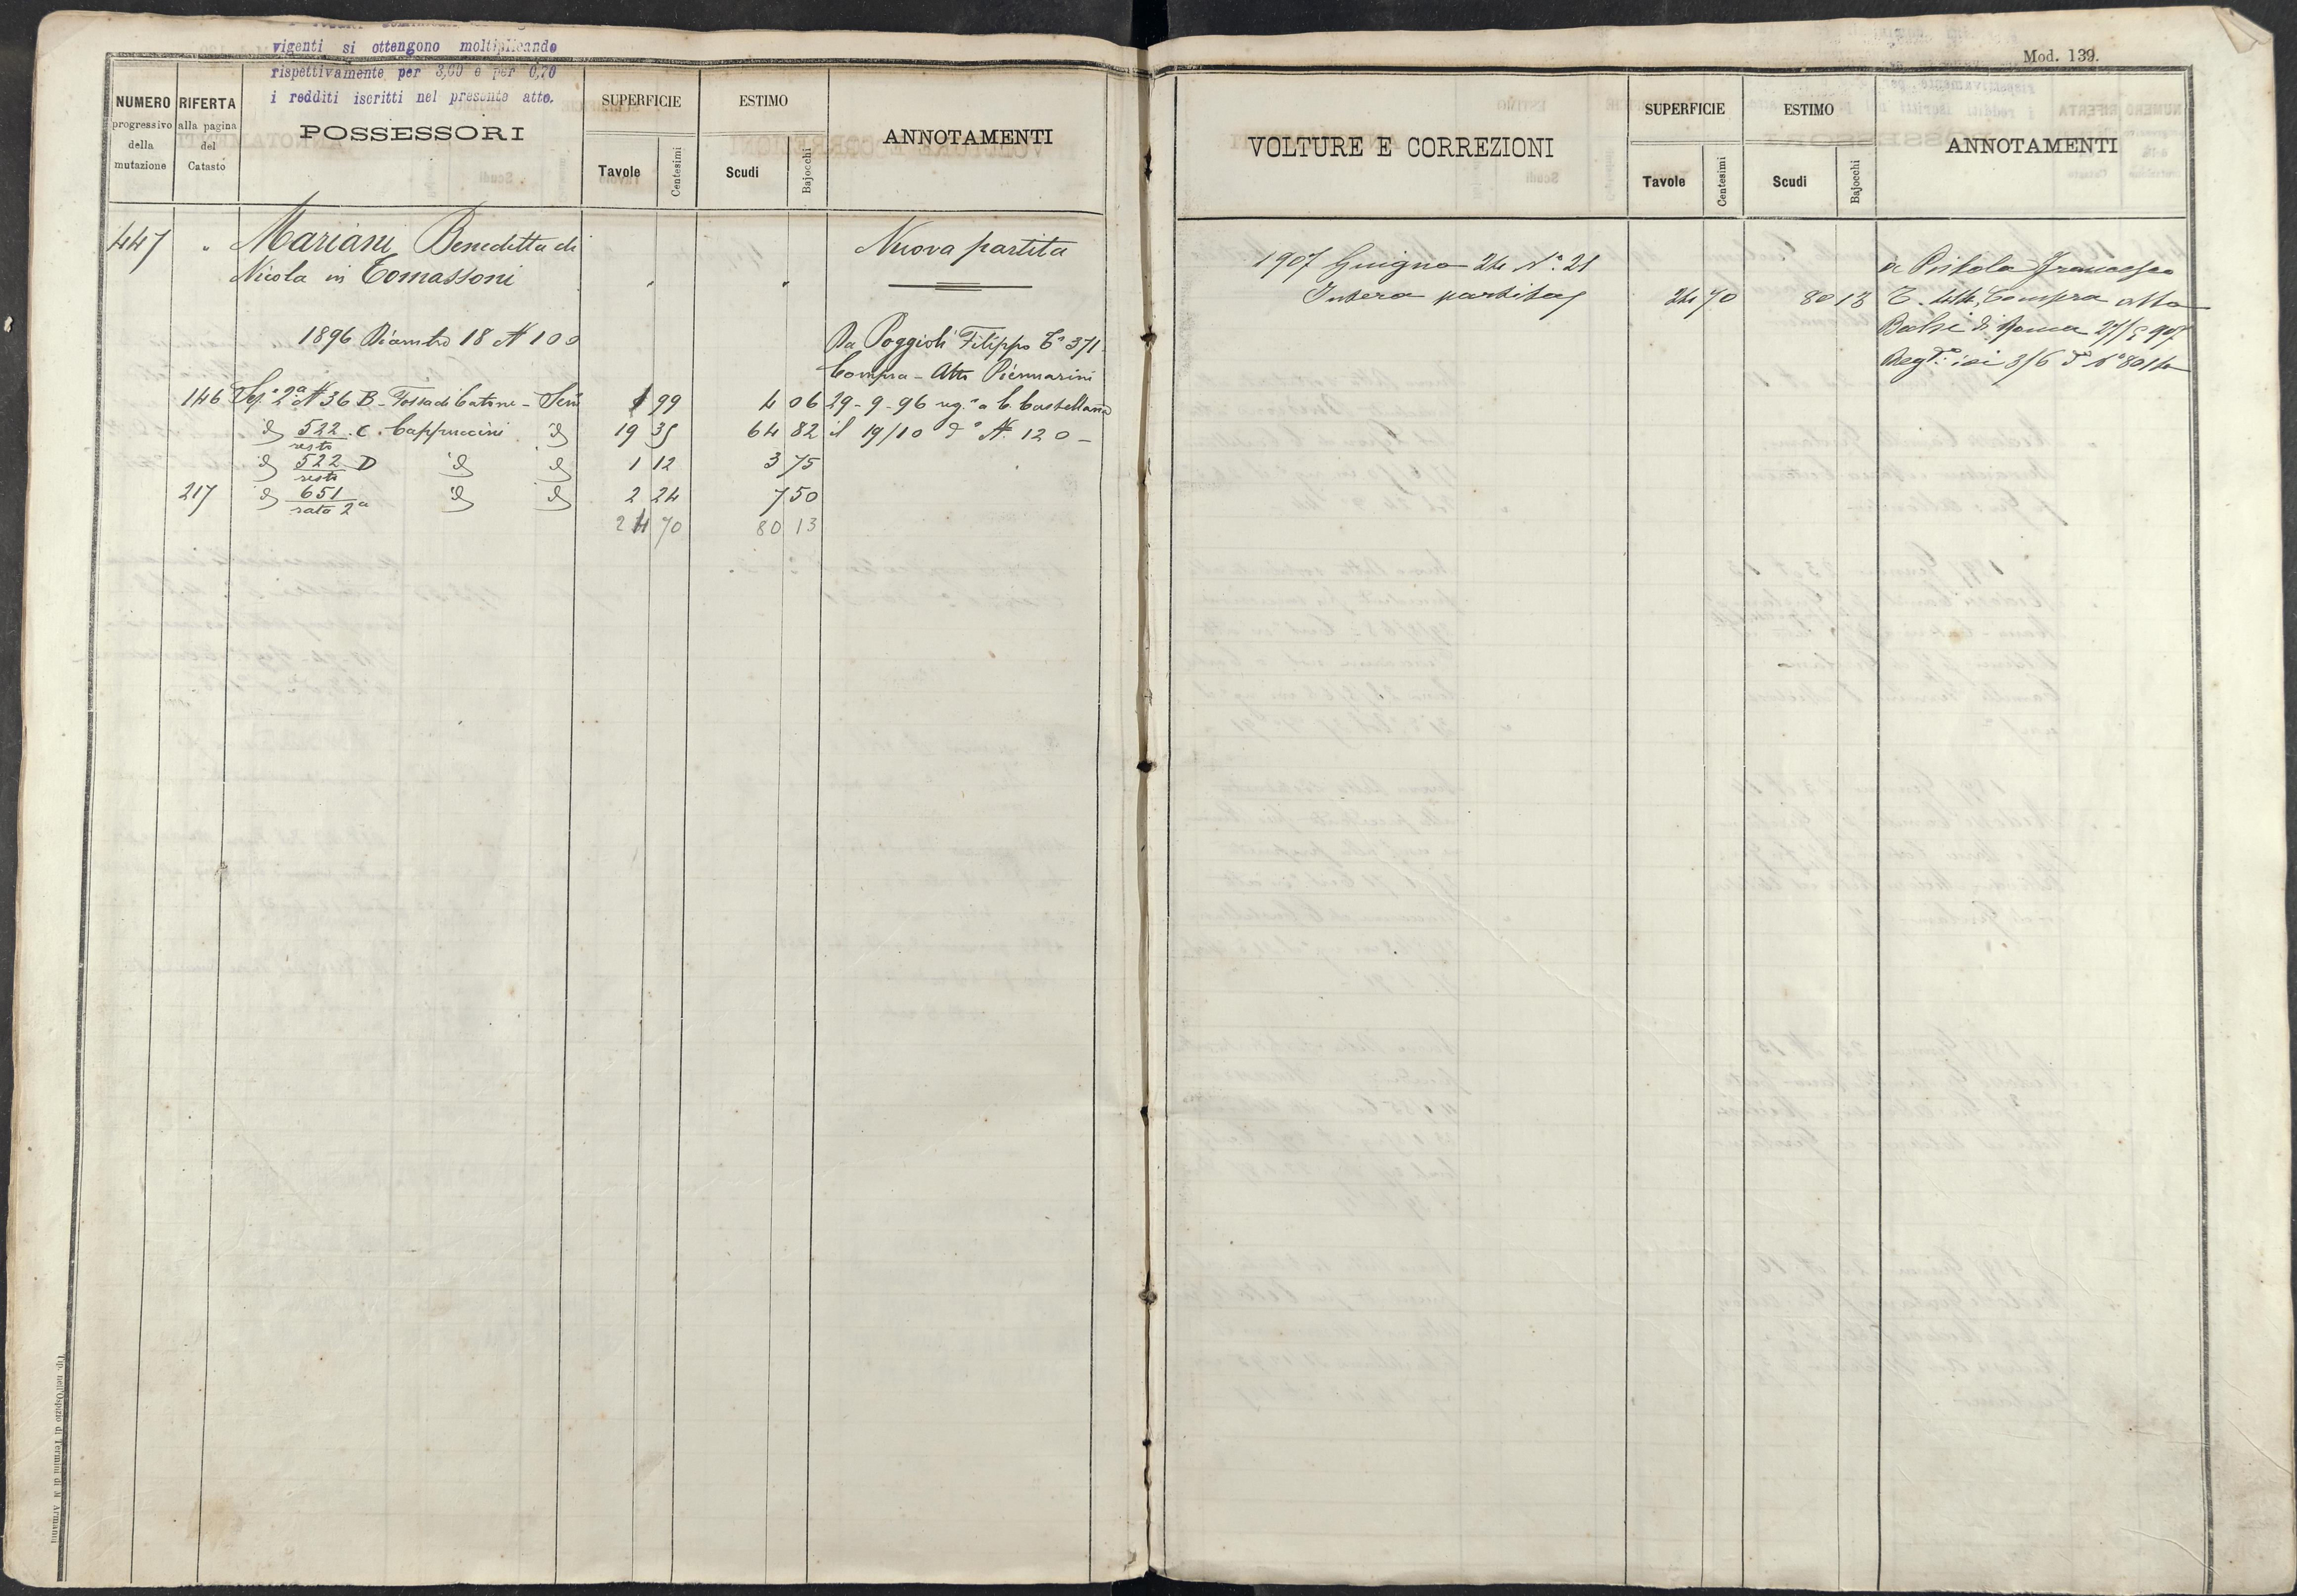 vigenti si ottengono moltiplicando
rispettivamente per 3,60 e per 0,70
i redditi iscritti nel presente atto.
NUMERO
progressivo
della
mutazione
RIFERTA
alla pagina
del
Catasto
POSSESSORI
SUPERFICIE
Tavole
Centesimi
ESTIMO
Scudi
Bajocchi
ANNOTAMENTI
447 " Mariani Benedetta di Nuova partita
Nicola in Tomassoni " "
1896 18 N 100 Da Poggioli Filippo Ca 371
Compra - Atto Piermarini
146 Sez. 2a N 36 B - Fossa di Catone - Sem 1 99 4 06 29-9-96 reg.o a C. Castellana
d 522 C. Cappuccini d 19 35 64 82 il 19/10 do N. 120 -
resto
d 522 D d d 1 12 3 75
resto
217 d 651 d d 2 24 7 50
rata 2a
24 70 80 13
Tip. nell'Ospizio di Termini di M. Armanni
Mod. 139.
VOLTURE E CORREZIONI
SUPERFICIE
Tavole
Centesimi
ESTIMO
Scudi
Bajocchi
ANNOTAMENTI
1907 Giugno 24 No. 21 a Pistola Francesco
Intera partita 24 70 80 13 Compra atto
di Roma 27/5 907
3/6 do No 8014